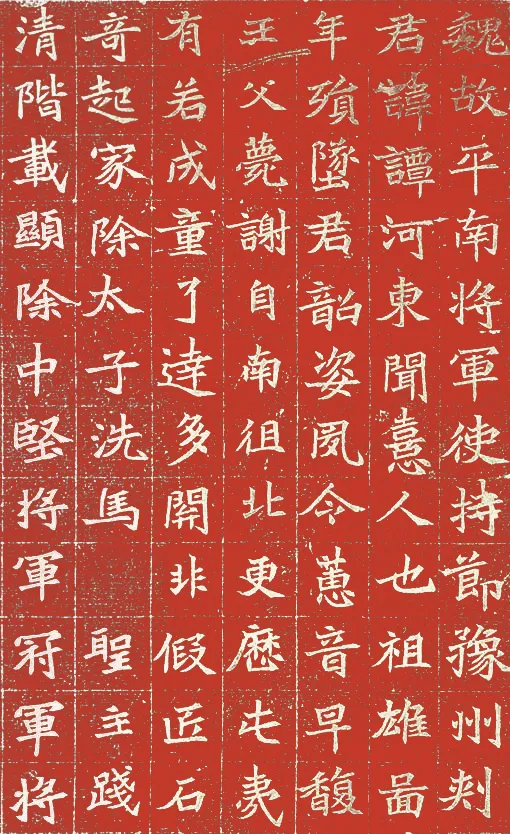 魏故平南将軍使持節豫州刾
君諱譚河東聞憙人也祖雄啚
年殞墜君韶姿夙令蕙音早馥
王父薨謝自南徂北更歷屯夷
有若成童了達多開非假匠石
竒起家除太子洗馬 聖主踐
清階載顯除中堅将軍冠軍将